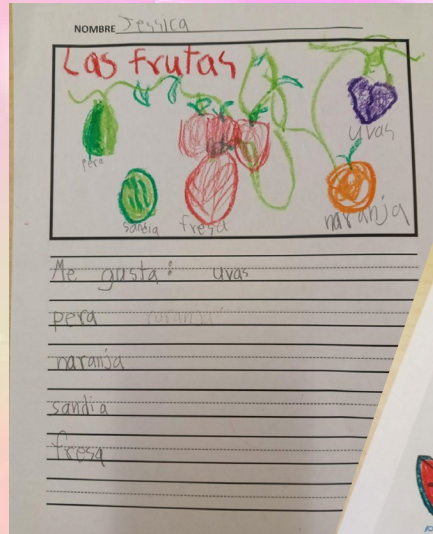 NOMBRE Jessica
Las frutas
uvas
pera
sandia
fresa
naranja
Me gusta: uvas
pera naranja
naranja
sandia
fresa